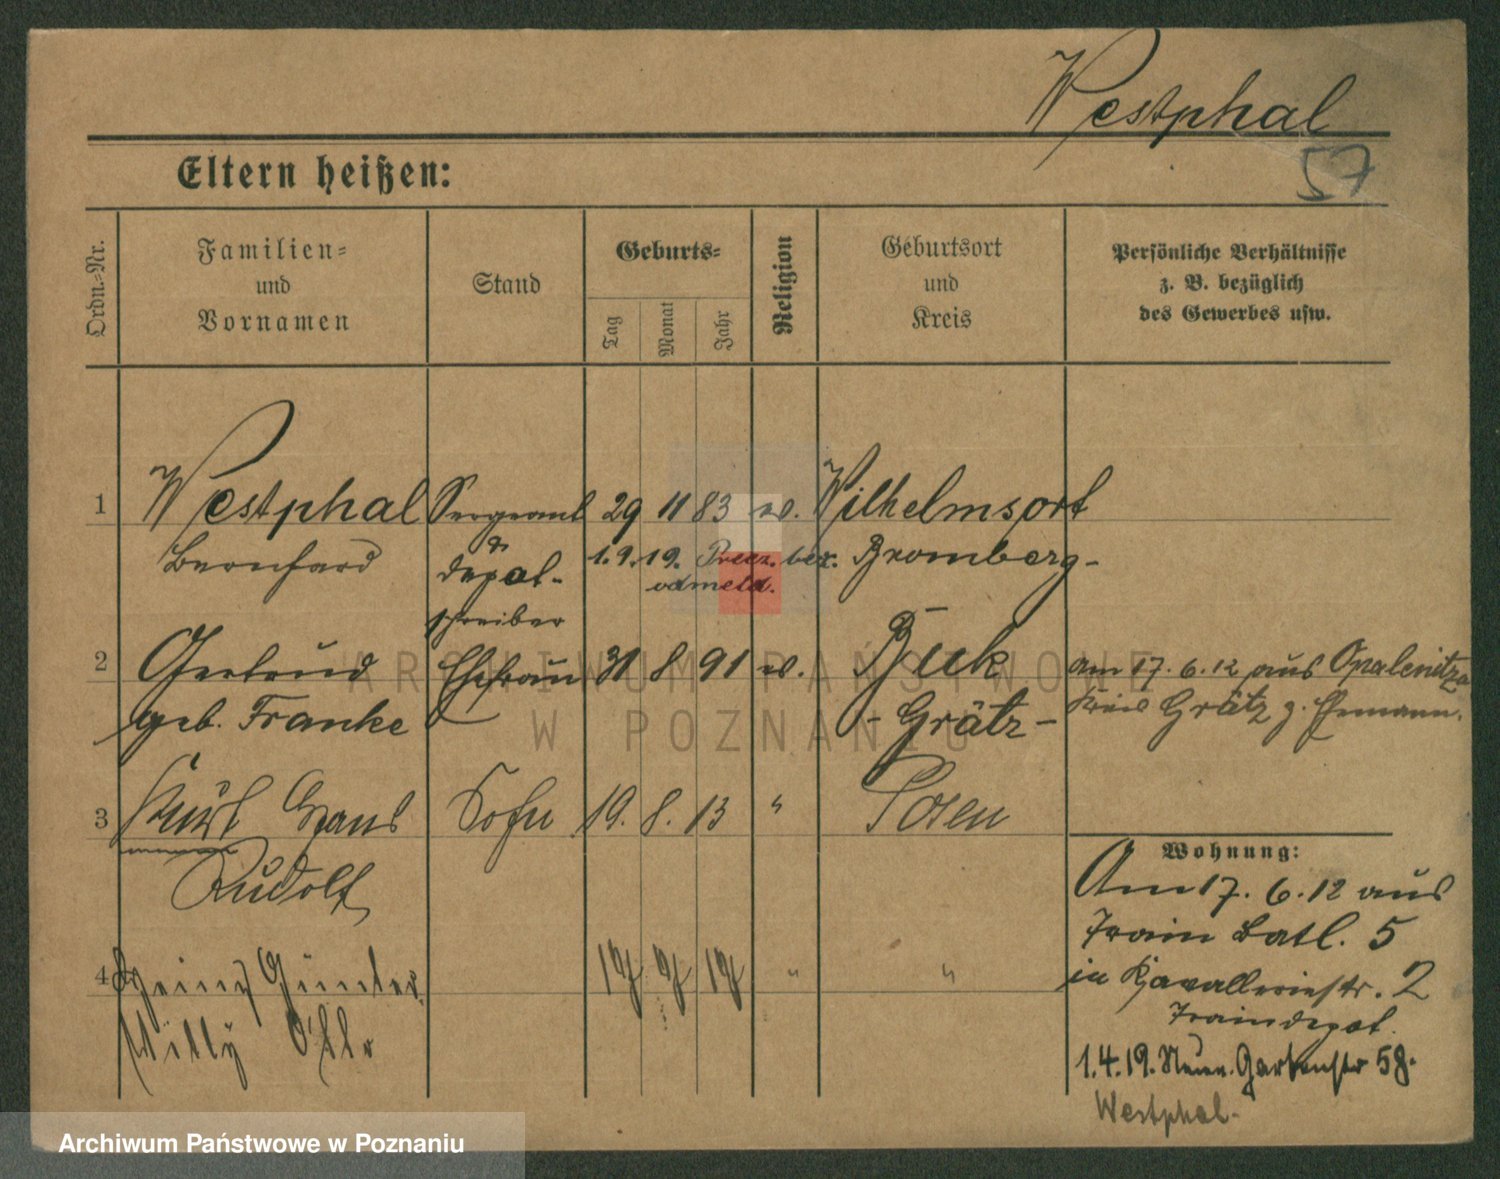 Westphal
57
Eltern heißen:
Ordn.-Nr.
Familien-
und
Vornamen
Stand
Geburts-
Tag
Monat
Jahr
Religion
Geburtsort
und
Kreis
Persönliche Verhältnisse
z. B. bezüglich
des Gewerbes usw.
1 Westphal Sergeant 29 11 83 ev. Wilhelmsort
Bernhard Depot- 1.9.19. bez. Bromberg-
schreiber
2 Gertrud Ehefrau 31 8 91 ev. Buk am 17.6.12 aus Opalenitza
geb. Franke - Grätz - Kreis Grätz z. Ehemann.
3 Kurt Hans Sohn 19. 8. 13 " Posen
Rudolf
4 Heinz Günter " "
Willy
Wohnung:
Am 17. 6. 12 aus
Train Batl. 5
in Kavalleriestr. 2
Traindepot.
1.4.19. Gartenstr 58.
Westphal.
ARCHIWUM PAŃSTWOWE
W POZNANIU
Archiwum Państwowe w Poznaniu